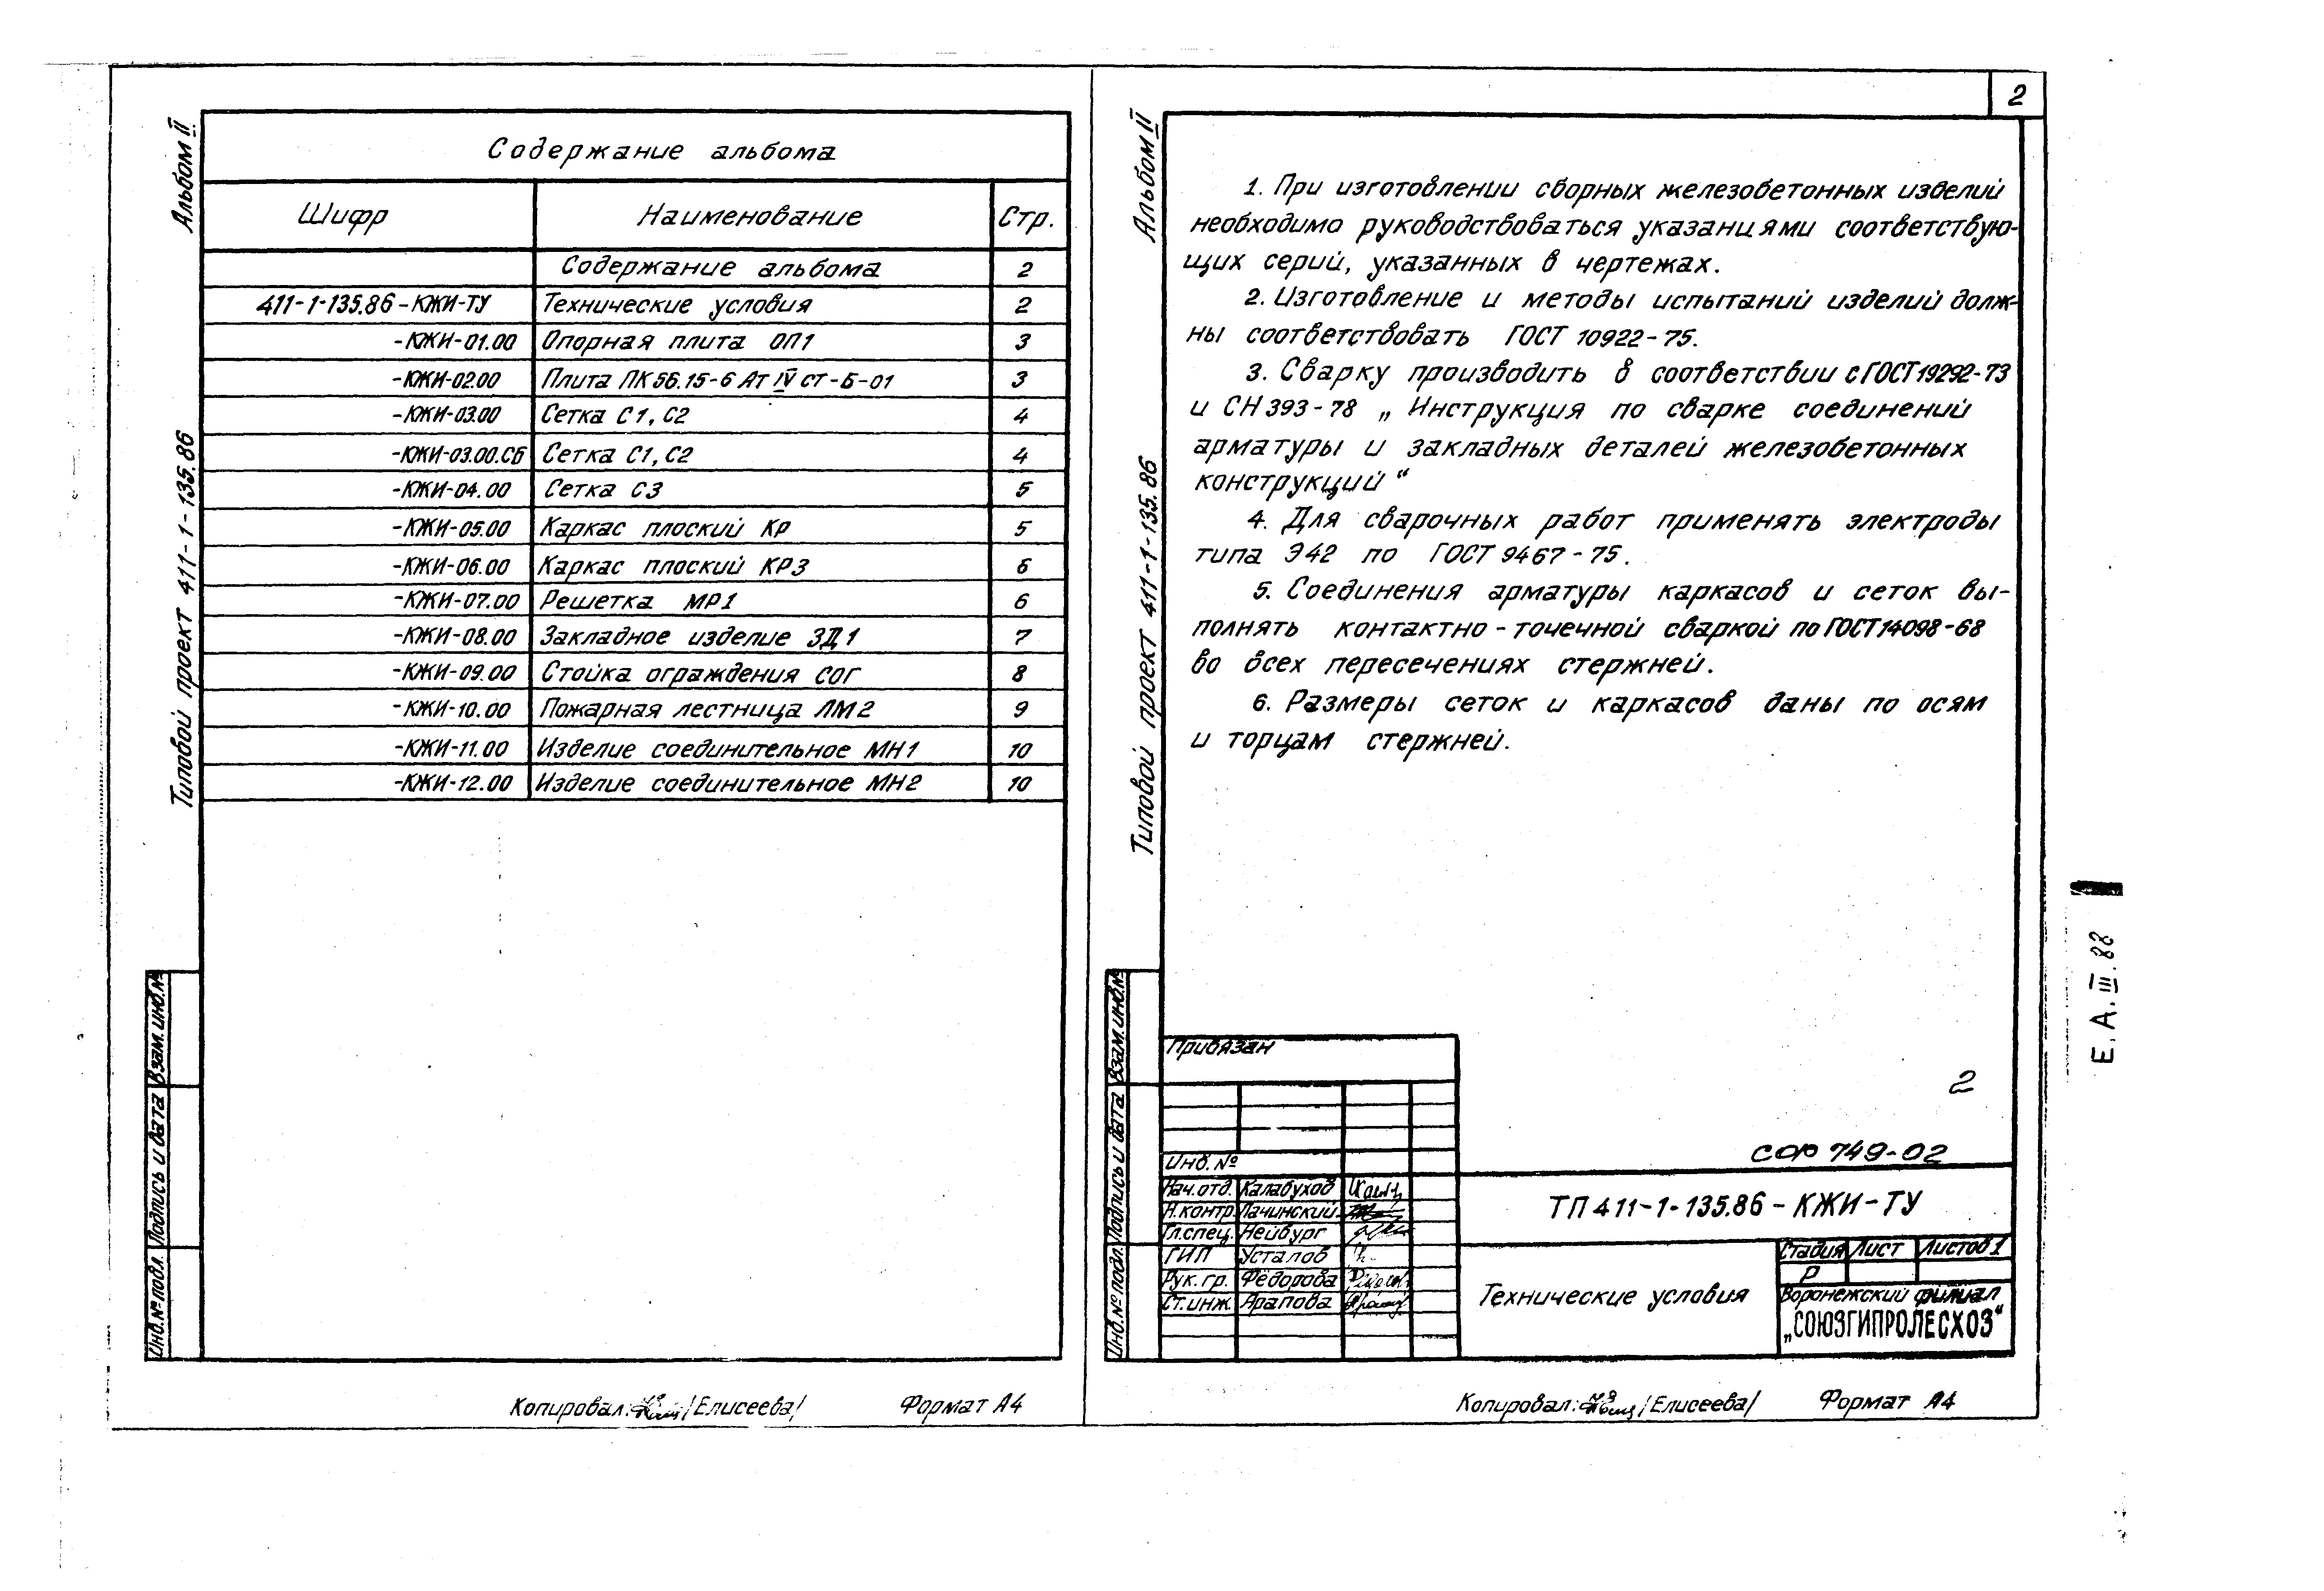 Альбом II
Типовой проект 411-1-135.86
Содержание альбома
Шифр Наименование Стр.
Содержание альбома 2
411-1-135.86-КЖИ-ТУ Технические условия 2
-КЖИ-01.00 Опорная плита ОП1 3
-КЖИ-02.00 Плита ПК56.15-6 Ат IV ст-Б-01 3
-КЖИ-03.00 Сетка С1, С2 4
-КЖИ-03.00.СБ Сетка С1, С2 4
-КЖИ-04.00 Сетка С3 5
-КЖИ-05.00 Каркас плоский КР 5
-КЖИ-06.00 Каркас плоский КР3 6
-КЖИ-07.00 Решетка МР1 6
-КЖИ-08.00 Закладное изделие ЗД1 7
-КЖИ-09.00 Стойка ограждения СОГ 8
-КЖИ-10.00 Пожарная лестница ЛМ2 9
-КЖИ-11.00 Изделие соединительное МН1 10
-КЖИ-12.00 Изделие соединительное МН2 10
Взам.инв.№
Подпись и дата
Инв.№ подл.
Копировал: /Елисеева/ Формат А4
2
Альбом II
Типовой проект 411-1-135.86
1. При изготовлении сборных железобетонных изделий
необходимо руководствоваться указаниями соответствую-
щих серий, указанных в чертежах.
2. Изготовление и методы испытаний изделий долж-
ны соответствовать ГОСТ 10922-75.
3. Сварку производить в соответствии с ГОСТ 19292-73
и СН 393-78 „Инструкция по сварке соединений
арматуры и закладных деталей железобетонных
конструкций“
4. Для сварочных работ применять электроды
типа Э42 по ГОСТ 9467-75.
5. Соединения арматуры каркасов и сеток вы-
полнять контактно-точечной сваркой по ГОСТ 14098-68
во всех пересечениях стержней.
6. Размеры сеток и каркасов даны по осям
и торцам стержней.
Взам.инв.№
Подпись и дата
Инв.№ подл.
Привязан
Инв.№
2
СФ 749-02
Нач.отд. Калабухов
Н.контр. Лачинский
Гл.спец. Нейбург
ГИП Усталов
Рук.гр. Федорова
Ст.инж. Арапова
ТП 411-1-135.86-КЖИ-ТУ
Технические условия
Стадия Лист Листов 1
Р
Воронежский филиал
„СОЮЗГИПРОЛЕСХОЗ“
Копировал: /Елисеева/ Формат А4
Е.А.III.88